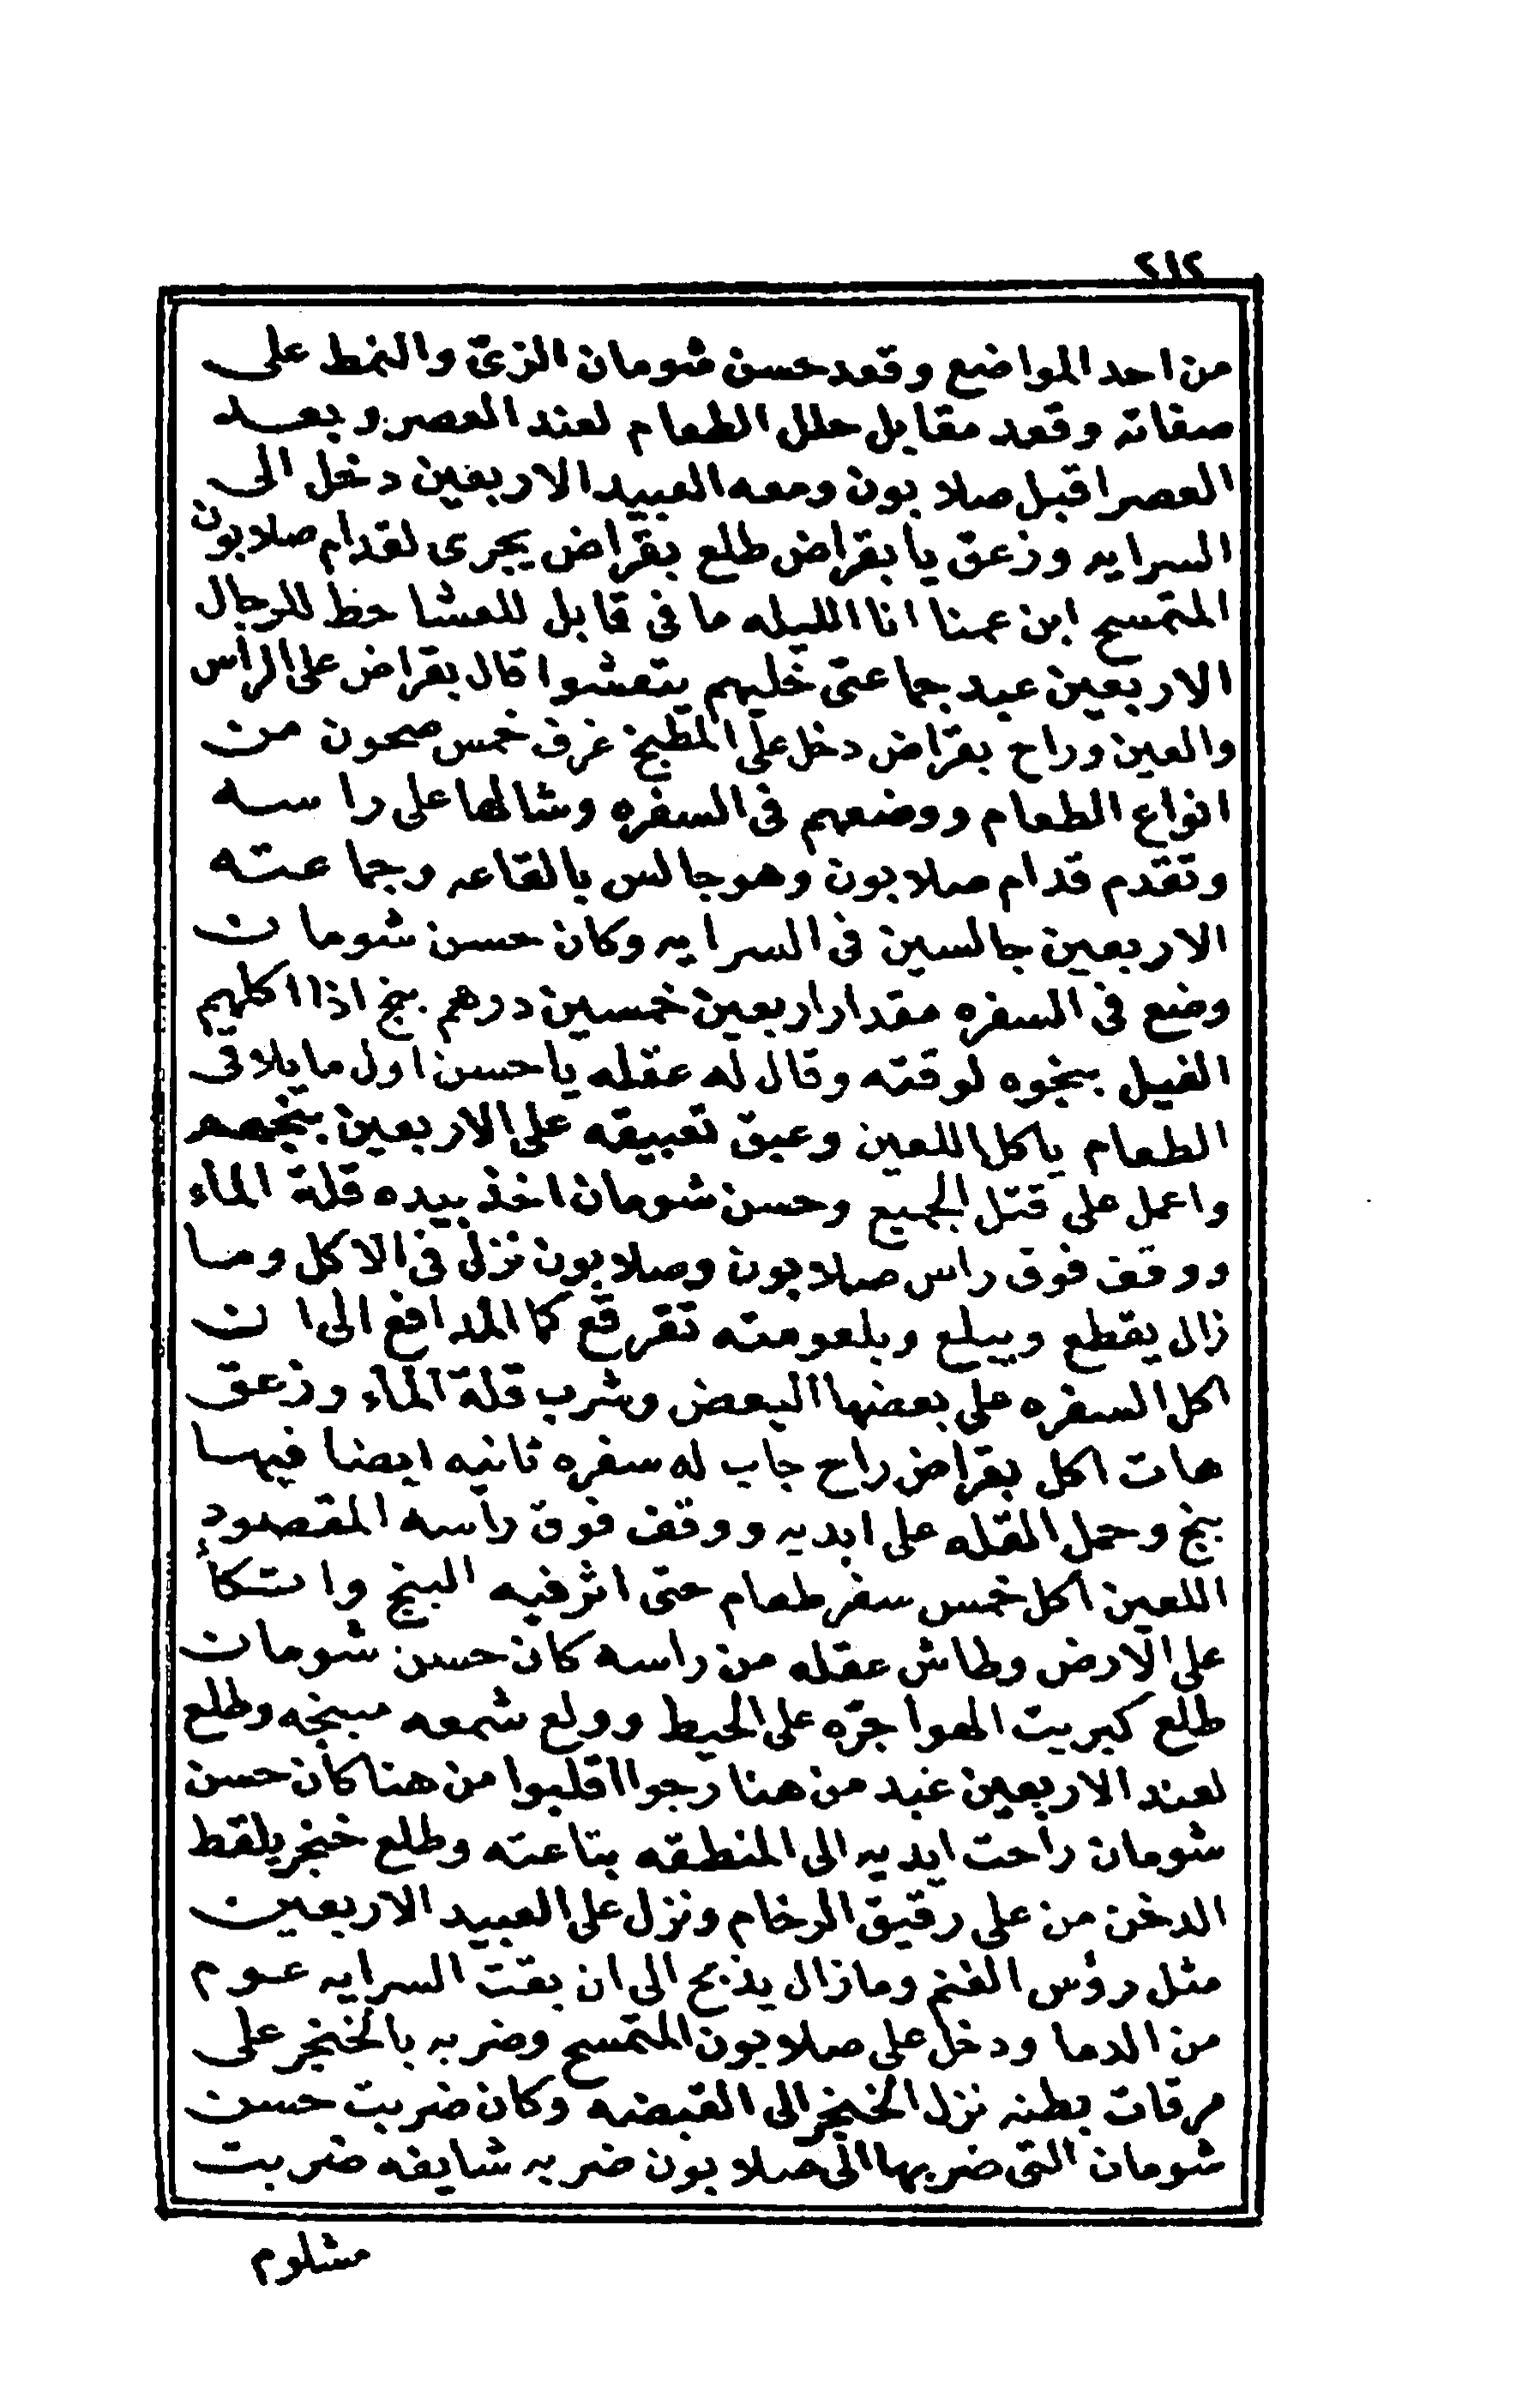 ٢١٢
من احد المواضع وقعد حسن شومان الزى والنمط على
صفاته وقعد مقابل حلل الطعام لعند العصر وبعد
العصر اقبل صلابون ومعه العبيد الاربعين دخل الى
السرايه وزعق يا بقراض طلع بقراض يجرى لقدام صلابون
المتمسح ابن عمنا انا الليله ما فى قابل للعشا حظ للرجال
الاربعين عبد جماعتى خليهم يتعشوا قال بقراض على الرأس
والعين وراح بقراض دخل على المطبخ غرف خمس صحون من
انواع الطعام ووضعهم فى السفره وشالها على راسه
وتقدم قدام صلابون وهو جالس بالقاعه وجماعته
الاربعين جالسين فى السرايه وكان حسن شومان
وضع فى السفره مقدار اربعين خمسين درهم بنج اذا اكلهم
الفيل بنجوه لوقته وقال له عقله يا حسن اول ما يلاقى
الطعام ياكل اللعين وعبق تعبيقه على الاربعين بنجهم
واعمل على قتل الجميع وحسن شومان اخذ بيده قلة الماء
ووقف فوق راس صلابون وصلابون نزل فى الاكل وما
زال يقطع ويبلع وبلعومته تقرقع كالمدافع الى ان
اكل السفره على بعضها البعض وشرب قلة الماء وزعق
هات اكل بقراض راح جاب له سفره ثانيه ايضا فيها
بنج وحمل القله على ايديه ووقف فوق راسه المقصود
اللعين اكل خمس سفر طعام حتى اثر فيه البنج واتكأ
على الارض وطاش عقله من راسه كان حسن شومان
طلع كبريت الهوا جره على الحيط وولع شمعه مبنجه وطلع
لعند الاربعين عبد من هنا رجوا اقلبوا من هنا كان حسن
شومان راحت ايديه الى المنطقه بتاعته وطلع خنجر يلقط
الدخن من على رقيق الرخام ونزل على العبيد الاربعين
مثل رؤس الغنم وما زال يذبح الى ان بقت السرايه عوم
من الدما ودخل على صلابون المتمسح وضربه بالخنجر على
مرقات بطنه نزل الخنجر الى القبضه وكان ضربت حسن
شومان التى ضربها الى صلابون ضربه شايفه ضربت
مشلوم